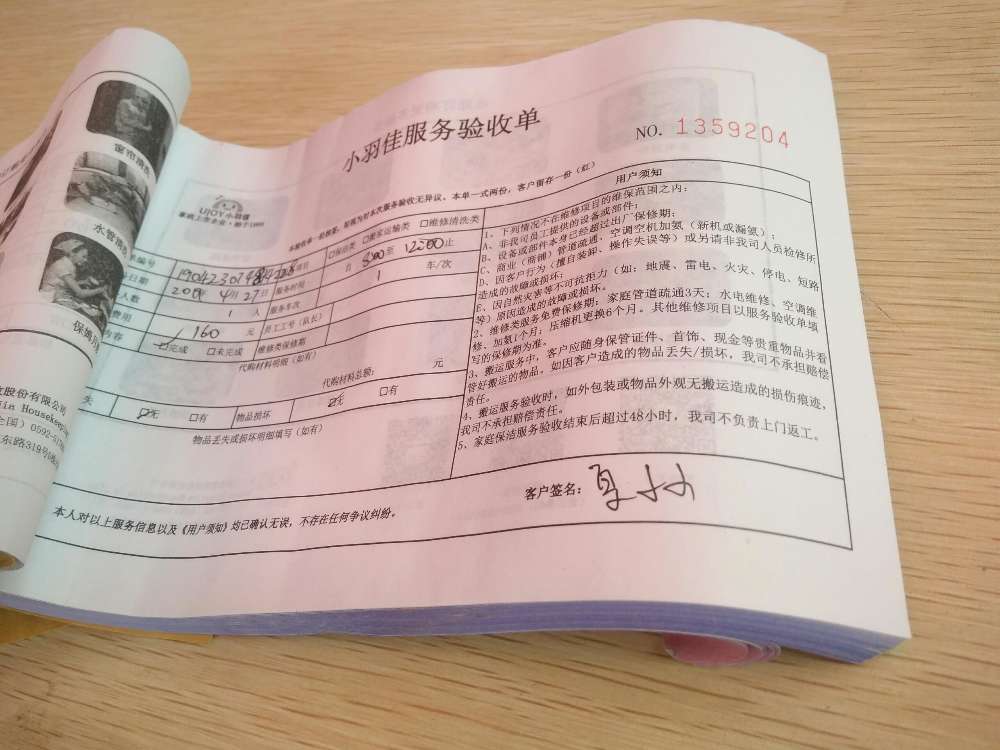 小羽佳服务验收单
NO. 1359204
UJOY小羽佳
家政上市企业·始于1999
本验收单一经签署，即视为对本次服务验收无异议。本单一式两份，客户留存一份（红）
□保洁类 □搬家运输类 □维修清洗类
单编号
务日期
4月27日 服务时间 自 8:00 至 12:00止
人数 1 人 服务车次 1 车/次
费用 160 元 员工工号（队长）
内容 ☑完成 □未完成 维修类保修期
代购材料明细（如有）
代购材料总额： 元
失 ☑无 □有 物品损坏 ☑无 □有
物品丢失或损坏明细填写（如有）
用户须知
1、下列情况不在维修项目的维保范围之内：
A、非我司员工提供的设备或部件；
B、设备或部件本身已经超过出厂保修期；
C、商业（商铺）管道疏通，空调空机加氨（新机或漏氨）；
D、因客户行为（擅自装卸、操作失误等）或另请非我司人员检修所
造成的故障或损坏。
E、因自然灾害等不可抗拒力（如：地震、雷电、火灾、停电、短路
等）原因造成的故障或损坏。
2、维修类服务免费保修期：家庭管道疏通3天；水电维修、空调维
修、加氨1个月；压缩机更换6个月。其他维修项目以服务验收单填
写的保修期为准。
3、搬运服务中，客户应随身保管证件、首饰、现金等贵重物品并看
管好搬运的物品，如因客户造成的物品丢失/损坏，我司不承担赔偿
责任。
4、搬运服务验收时，如外包装或物品外观无搬运造成的损伤痕迹，
我司不承担赔偿责任。
5、家庭保洁服务验收结束后超过48小时，我司不负责上门返工。
本人对以上服务信息以及《用户须知》均已确认无误，不存在任何争议纠纷。
客户签名：
窗帘清洗
水管清洗
保姆月
股份有限公司
Housekee
全国）0592-
东路319号